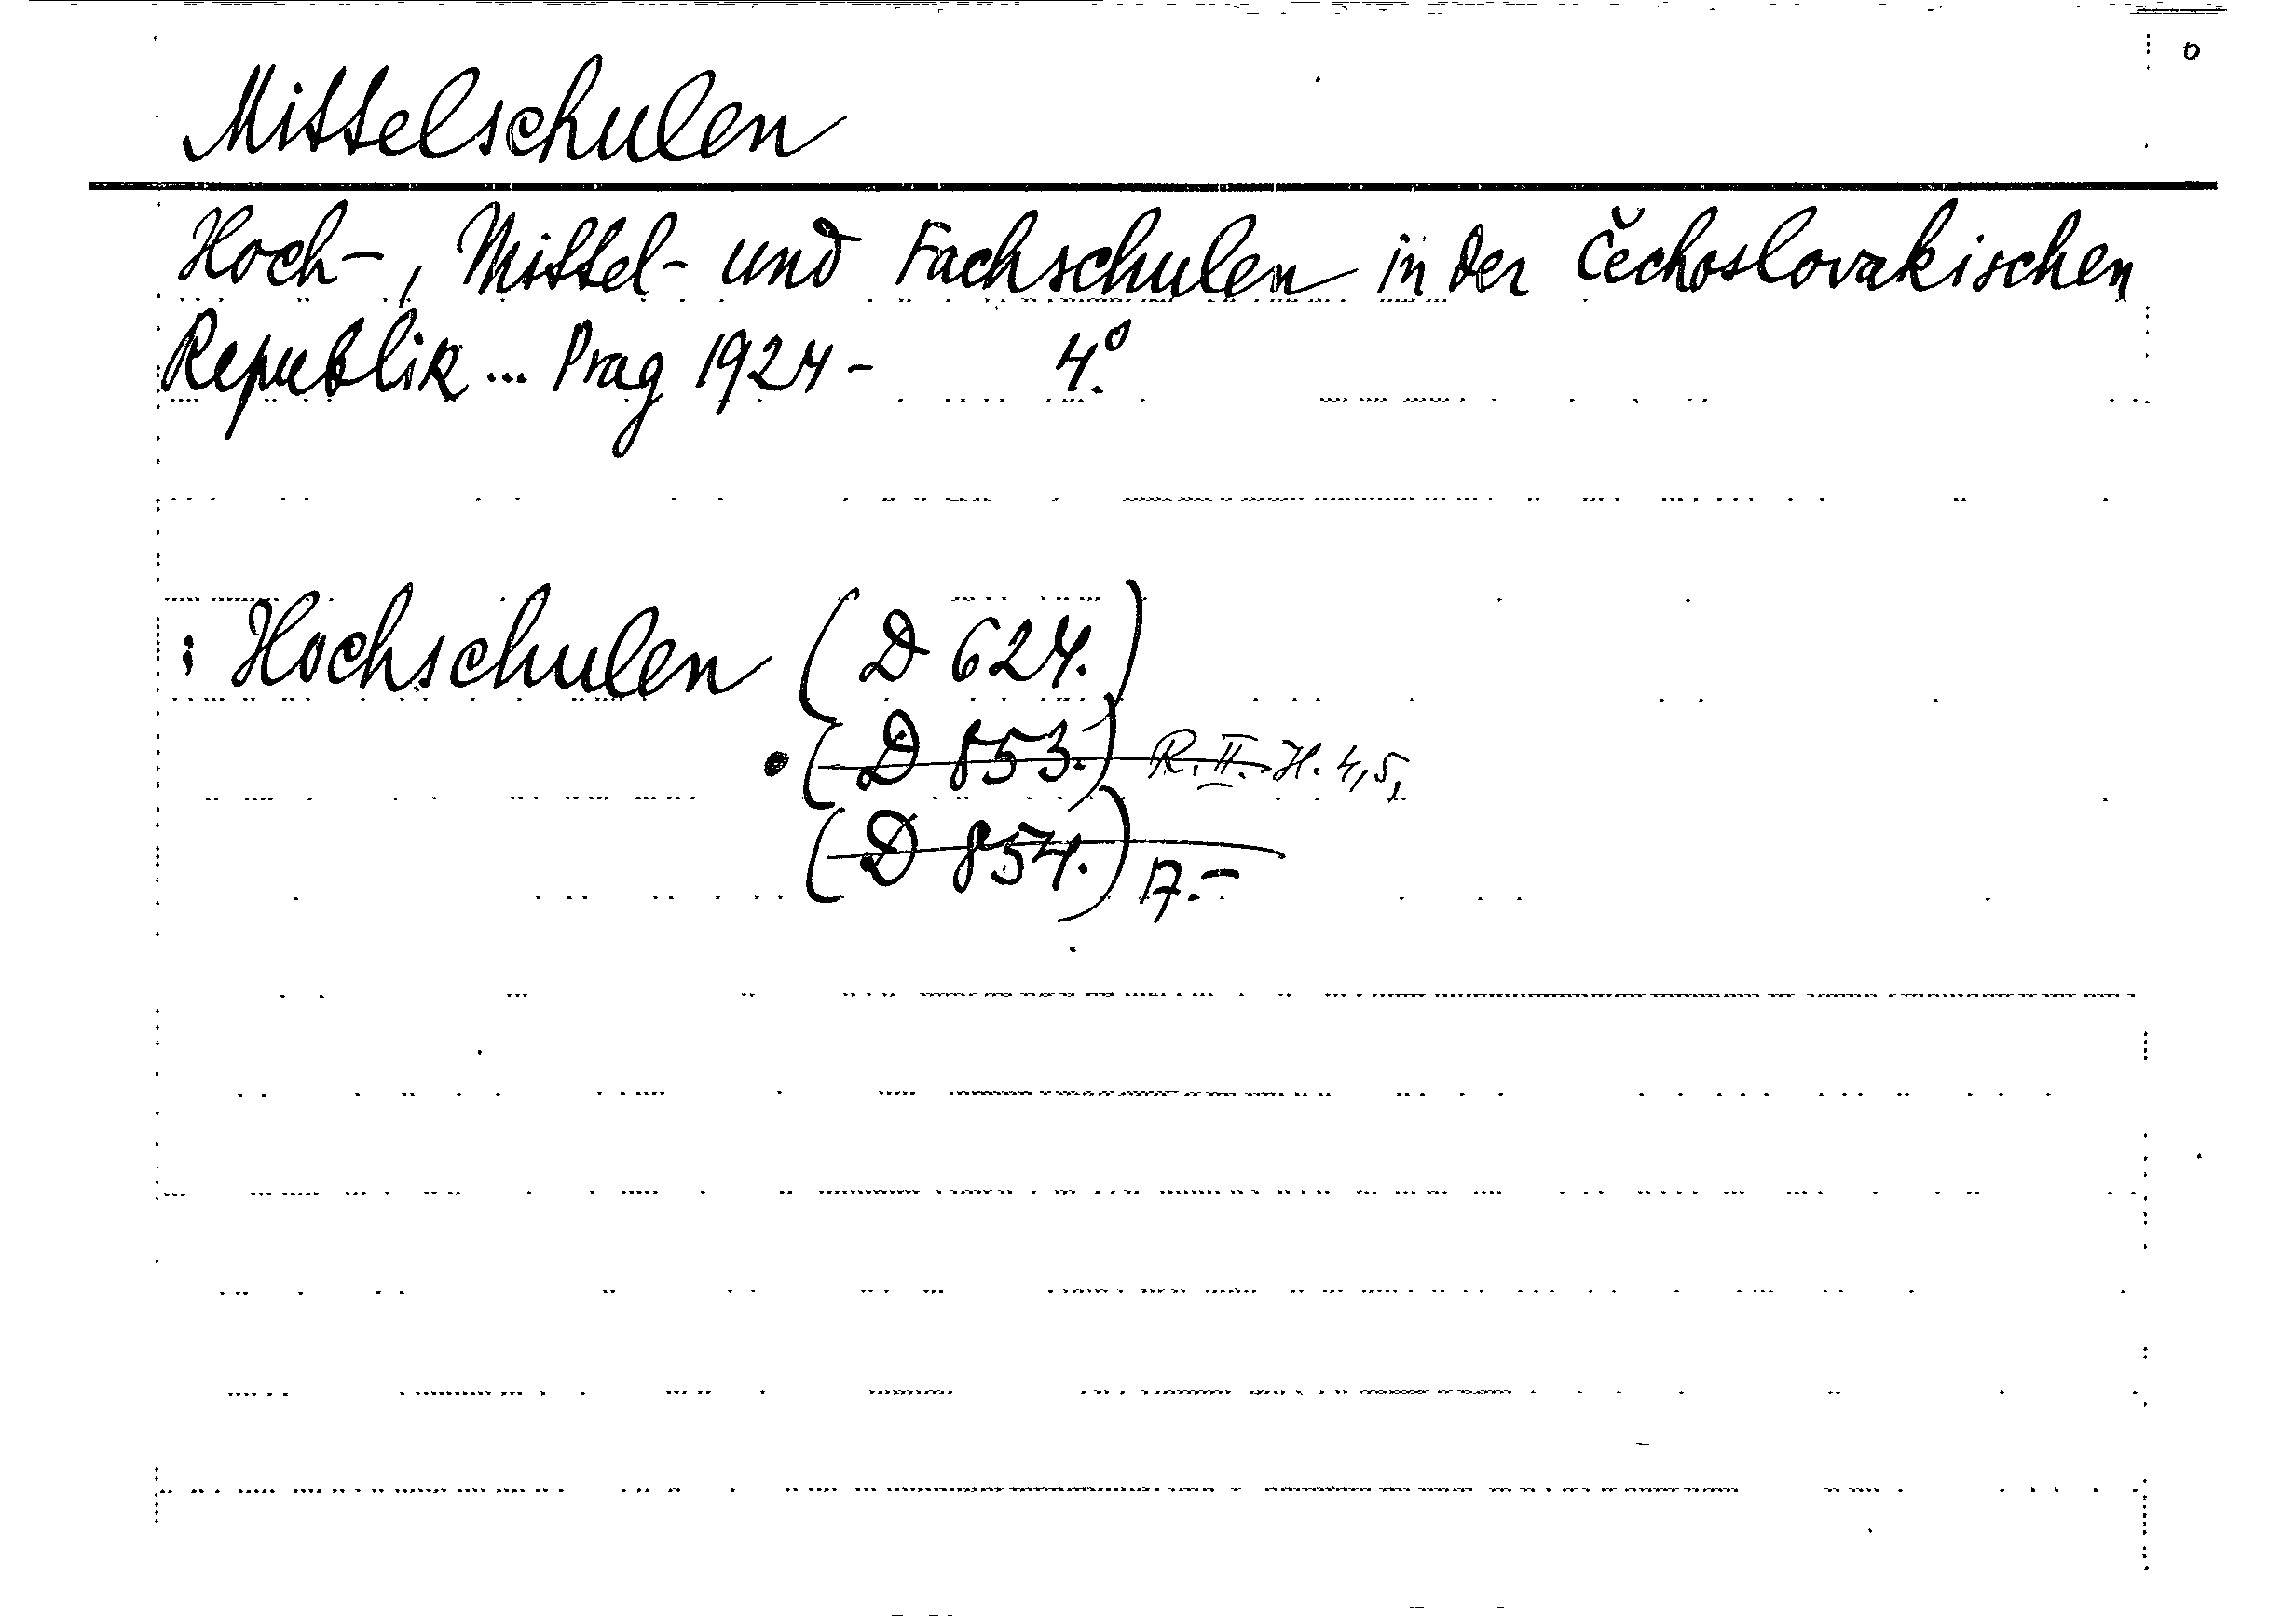 o
Mittelschulen
Hoch-, Mittel- und Fachschulen in der Čechoslovakischen
Republik... Prag 1924- 4.º
: Hochschulen (D 624.)
(D 853.) R. II. H. 4,5,
(D 854.) 17.-